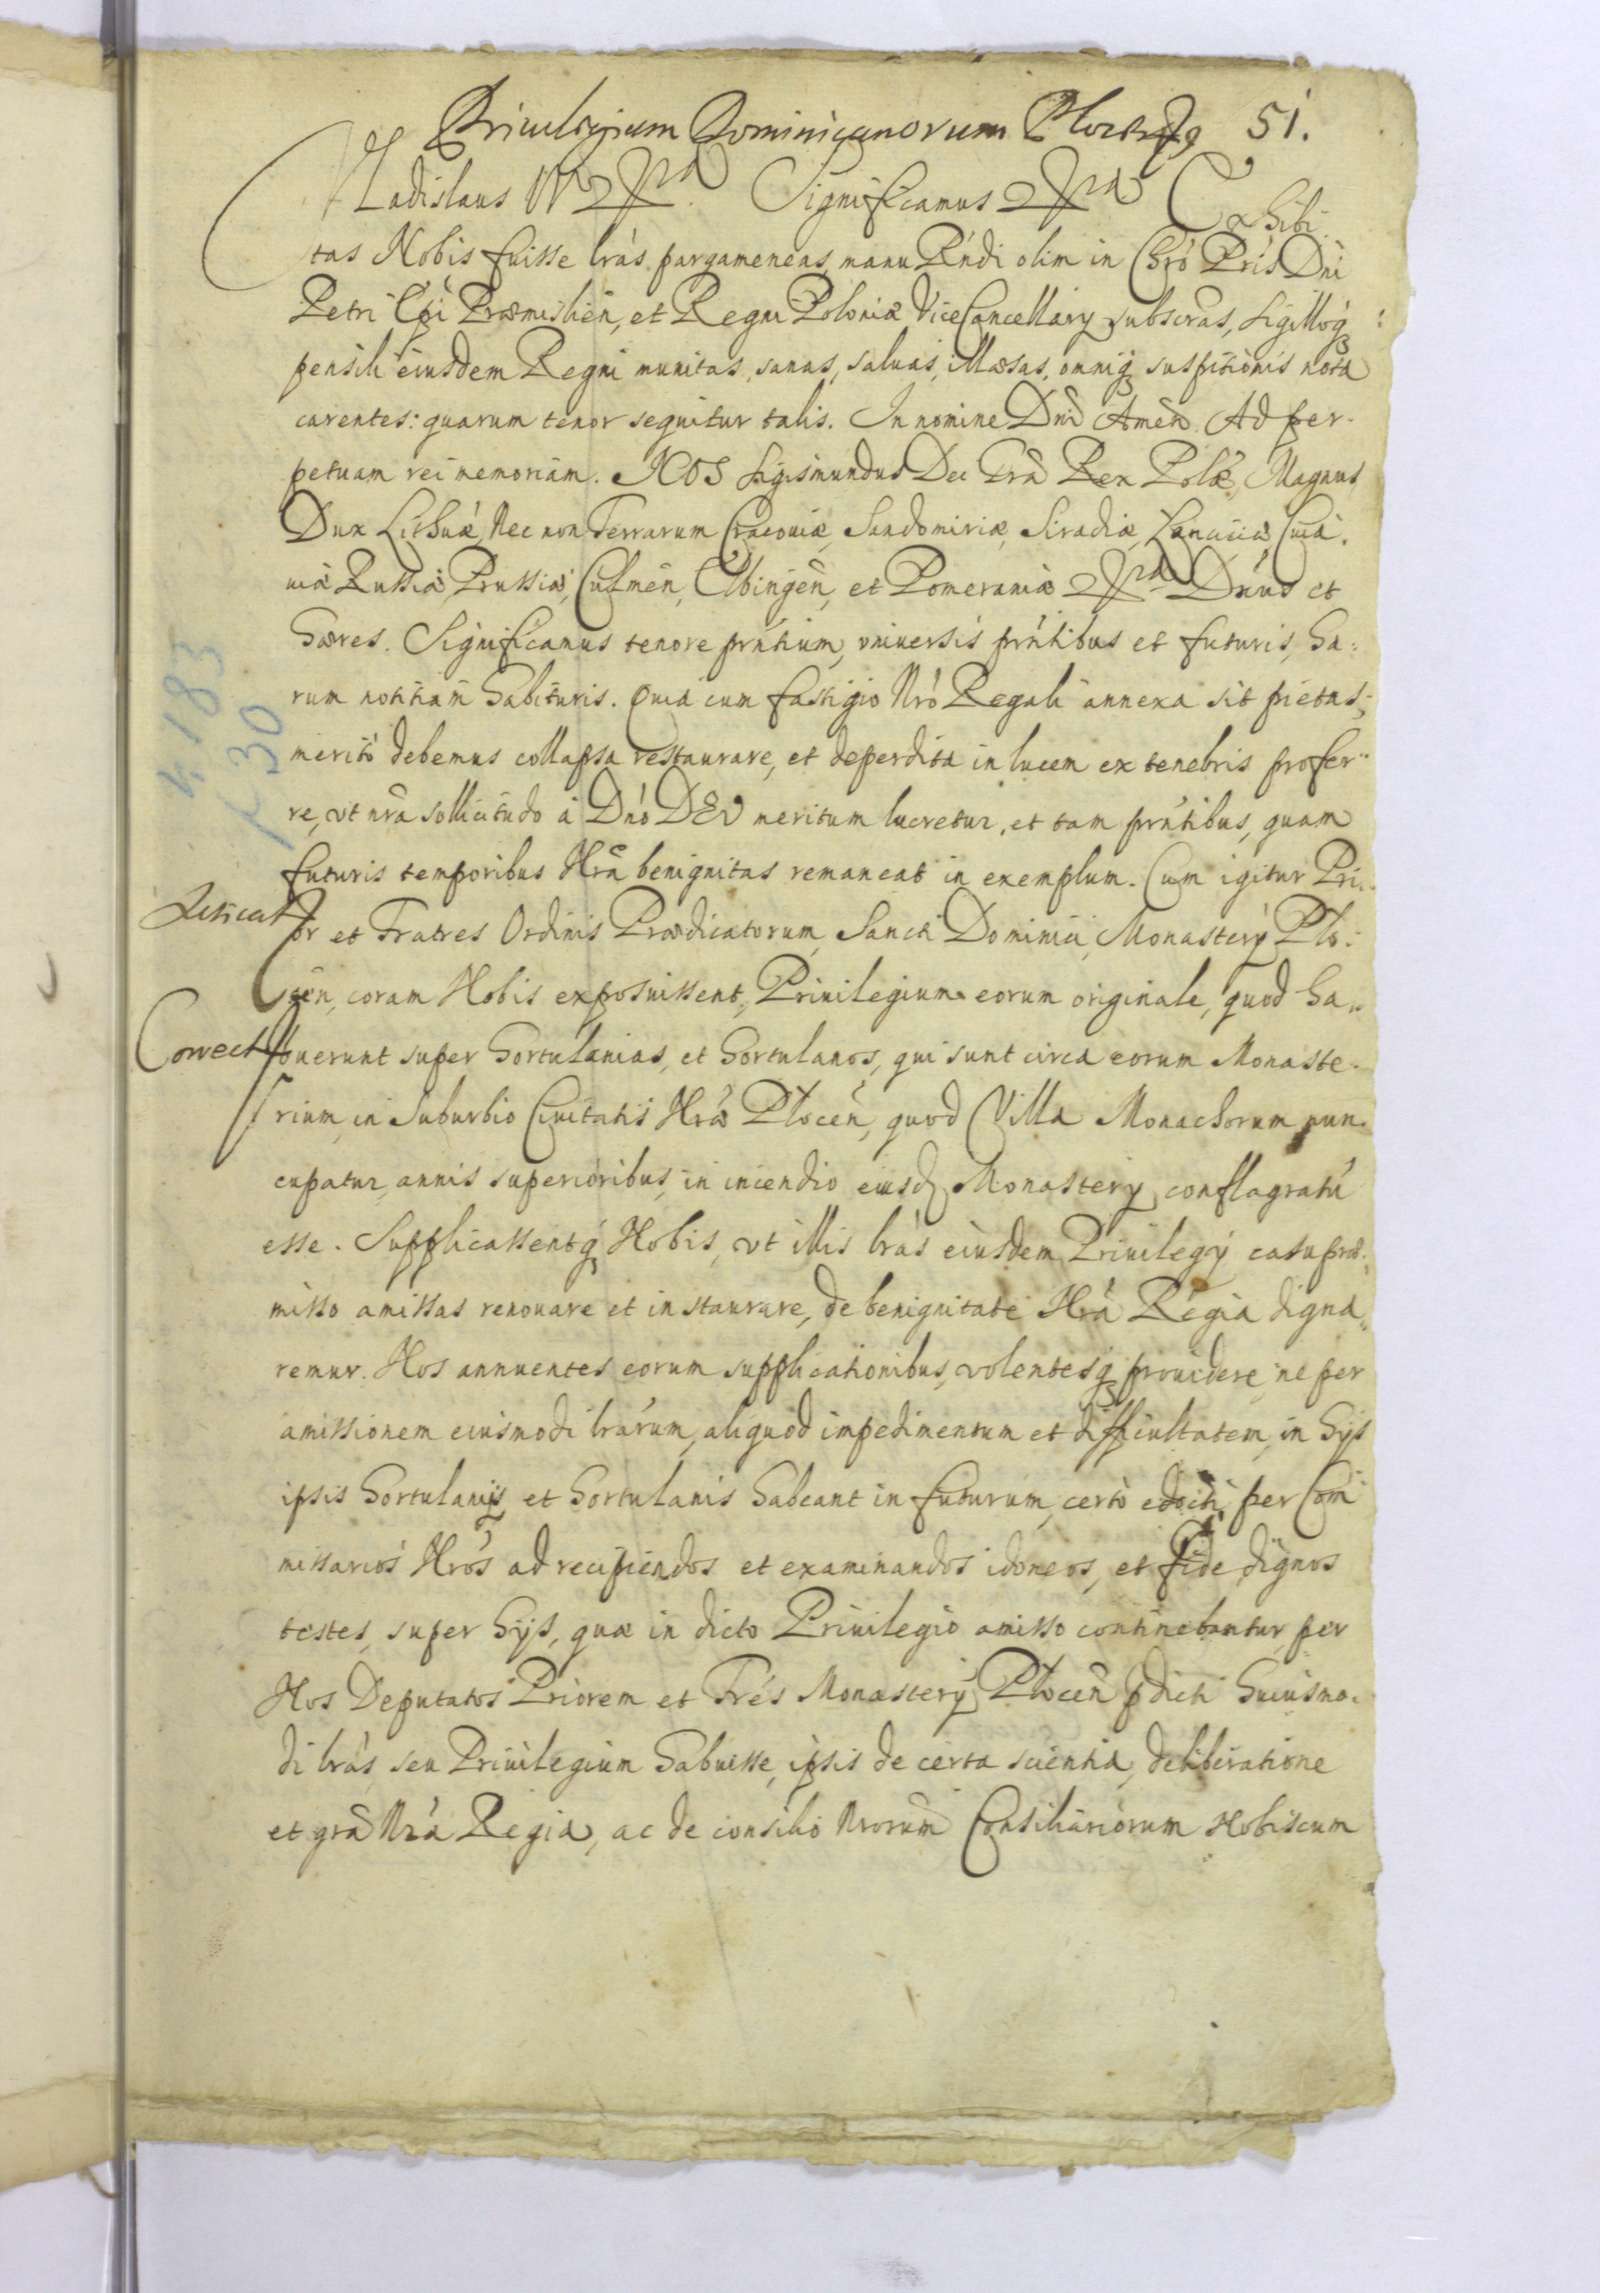 Priuilegium Dominicanorum Plocens 51.
Vladislaus IV etc. Significamus etc. Exhibi-
tas Nobis fuisse lrás pargameneas, manu Rńdi olim in Chró Pris Dni
Petri Epi Præmislien̄, et Regni Poloniæ ViceCancellarij subscrás, Sigilloq3
pensili eiusdem Regni munitas, sanas, saluas, illæsas, omniq3 suspitionis nota
carentes: quarum tenor sequitur talis. In nomine Dni Amen. Ad per-
petuam rei memoriam. NOS Sigismundus Dei Grã Rex Polæ, Magnus
Dux Lithuæ, Nec non Terrarum Cracoviæ, Sandomiriæ, Siradiæ, Lanciciæ, Cuia-
uiæ Russiæ, Prussiæ, Culmen̄, Elbingen̄, et Pomeraniæ etc. Dńus et
Hæres. Significamus tenore prńtium, vniuersis prńtibus et futuris, ha-
rum notitiam habituris. Quia cum fastigio Nró Regali annexa sit pietas,
meritò debemus collapsa restaurare, et deperdita in lucem ex tenebris profer-
re, vt nrã sollicitudo à Dńo DEO meritum lucretur, et tam prńtibus, quam
futuris temporibus Nrã benignitas remaneat in exemplum. Cum igitur Pri-
or et Fratres Ordinis Prædicatorum, Sancti Dominici, Monasterÿ Plo-
cen̄, coram Nobis exposuissent, Priuilegium eorum originale, quod ha-
Correct
buerunt super Hortulanias, et Hortulanos, qui sunt circa eorum Monaste-
rium, in Suburbio Ciuitatis Nræ Plocen̄, quod Villa Monachorum nun-
cupatur, annis superioribus, in incendio eiusd Monasterÿ conflagratũ
esse. Supplicassentq3 Nobis, vt illis lrás eiusdem Priuilegÿ casu præ-
misso amissas renouare et instaurare, de benignitate Nrá Regia digna-
remur. Nos annuentes eorum supplicationibus, volentesq3 prouidere, ne per
amissionem eiusmodi lrárum, aliquod impedimentum et difficultatem, in hÿs
ipsis Hortulanijs, et Hortulanis habeant in futurum, certò edocti, per Com̄
missarios Nrós ad recipiendos et examinandos idoneos, et fide dignos
testes, super hÿs, quæ in dicto Priuilegio amisso continebantur, per
Nos Deputatos Priorem et Frés Monasterÿ Plocen̄ pdicti huiusmo-
di lrás, seu Priuilegium habuisse, ipsis de certa scientia, deliberatione
et grã Nrá Regia, ac de consilio Nrorum Consiliariorum Nobiscum